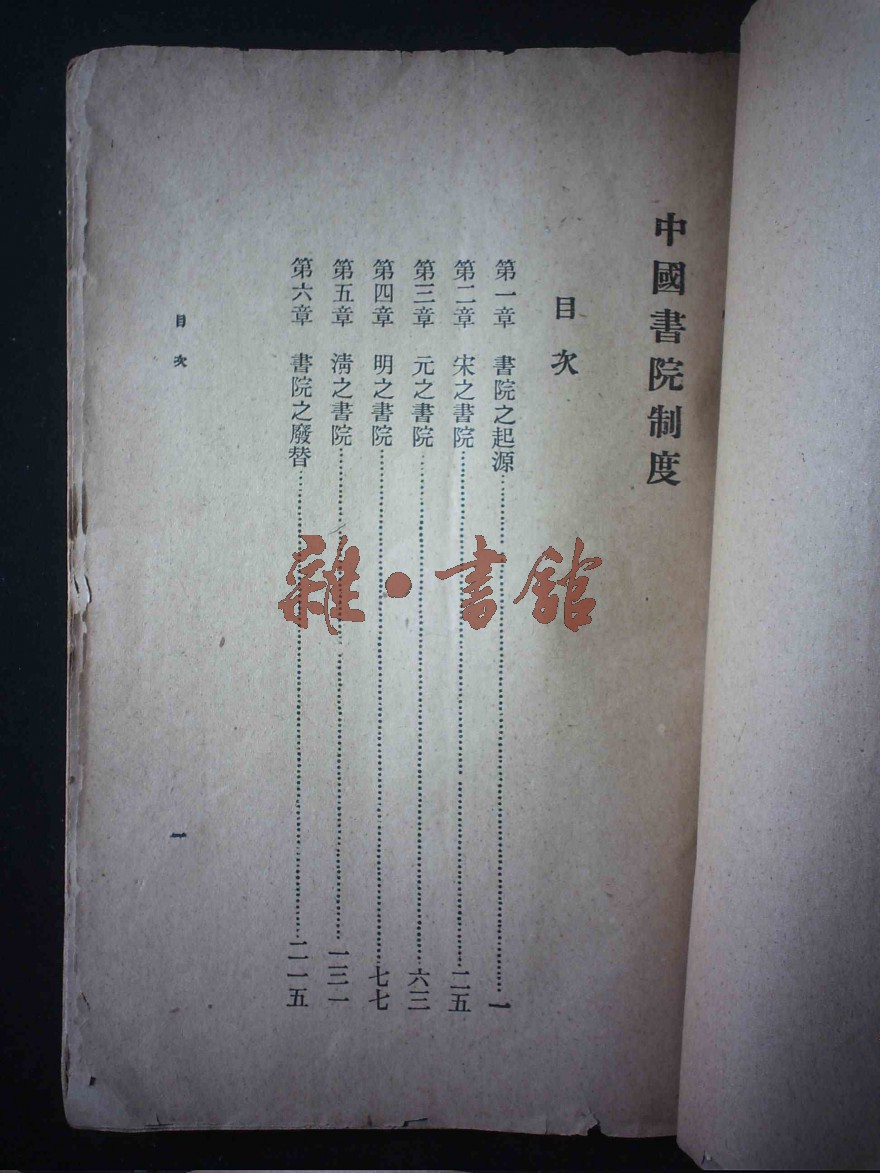 中國書院制度
目次
第一章 書院之起源……一
第二章 宋之書院……二五
第三章 元之書院……六三
第四章 明之書院……七七
第五章 淸之書院……一三一
第六章 書院之廢替……二一五
目次 一
雜·書館